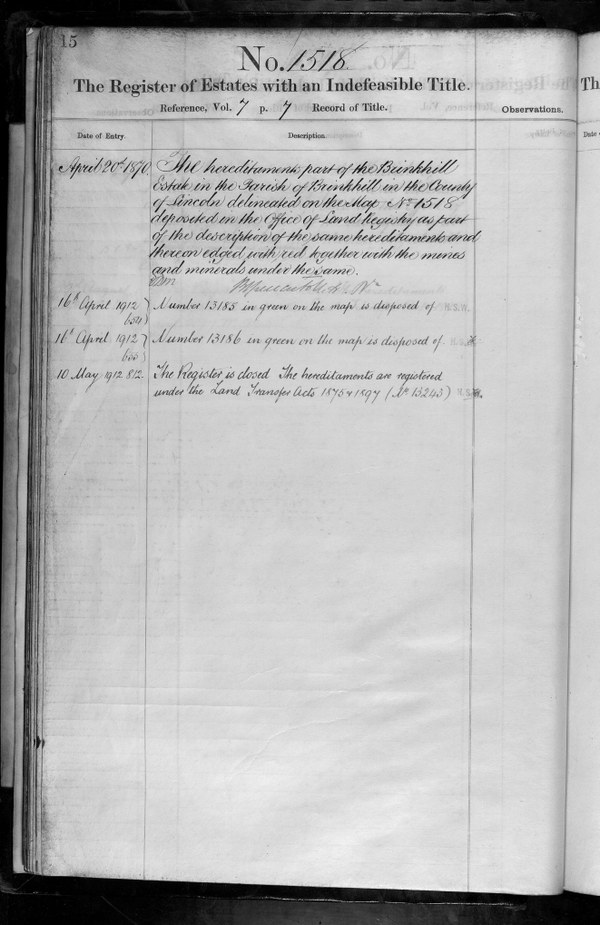 15
No. 1518
The Register of Estates with an Indefeasible Title.
Reference, Vol. 7 p. 7 Record of Title.
Observations.
Date of Entry.
Description.
April 20th 1870
The hereditaments part of the Brinkhill
Estate in the Parish of Brinkhill in the County
of Lincoln delineated on the Map No 1518
deposited in the Office of Land Registry as part
of the description of the same hereditaments and
thereon edged with red together with the mines
and minerals under the same.
16th April 1912
654
Number 13185 in green on the map is disposed of
16th April 1912
655
Number 13186 in green on the map is disposed of.
10 May 1912 812.
The Register is closed The hereditaments are registered
under the Land Transfer Acts 1875 & 1897 (No 13243)
Th